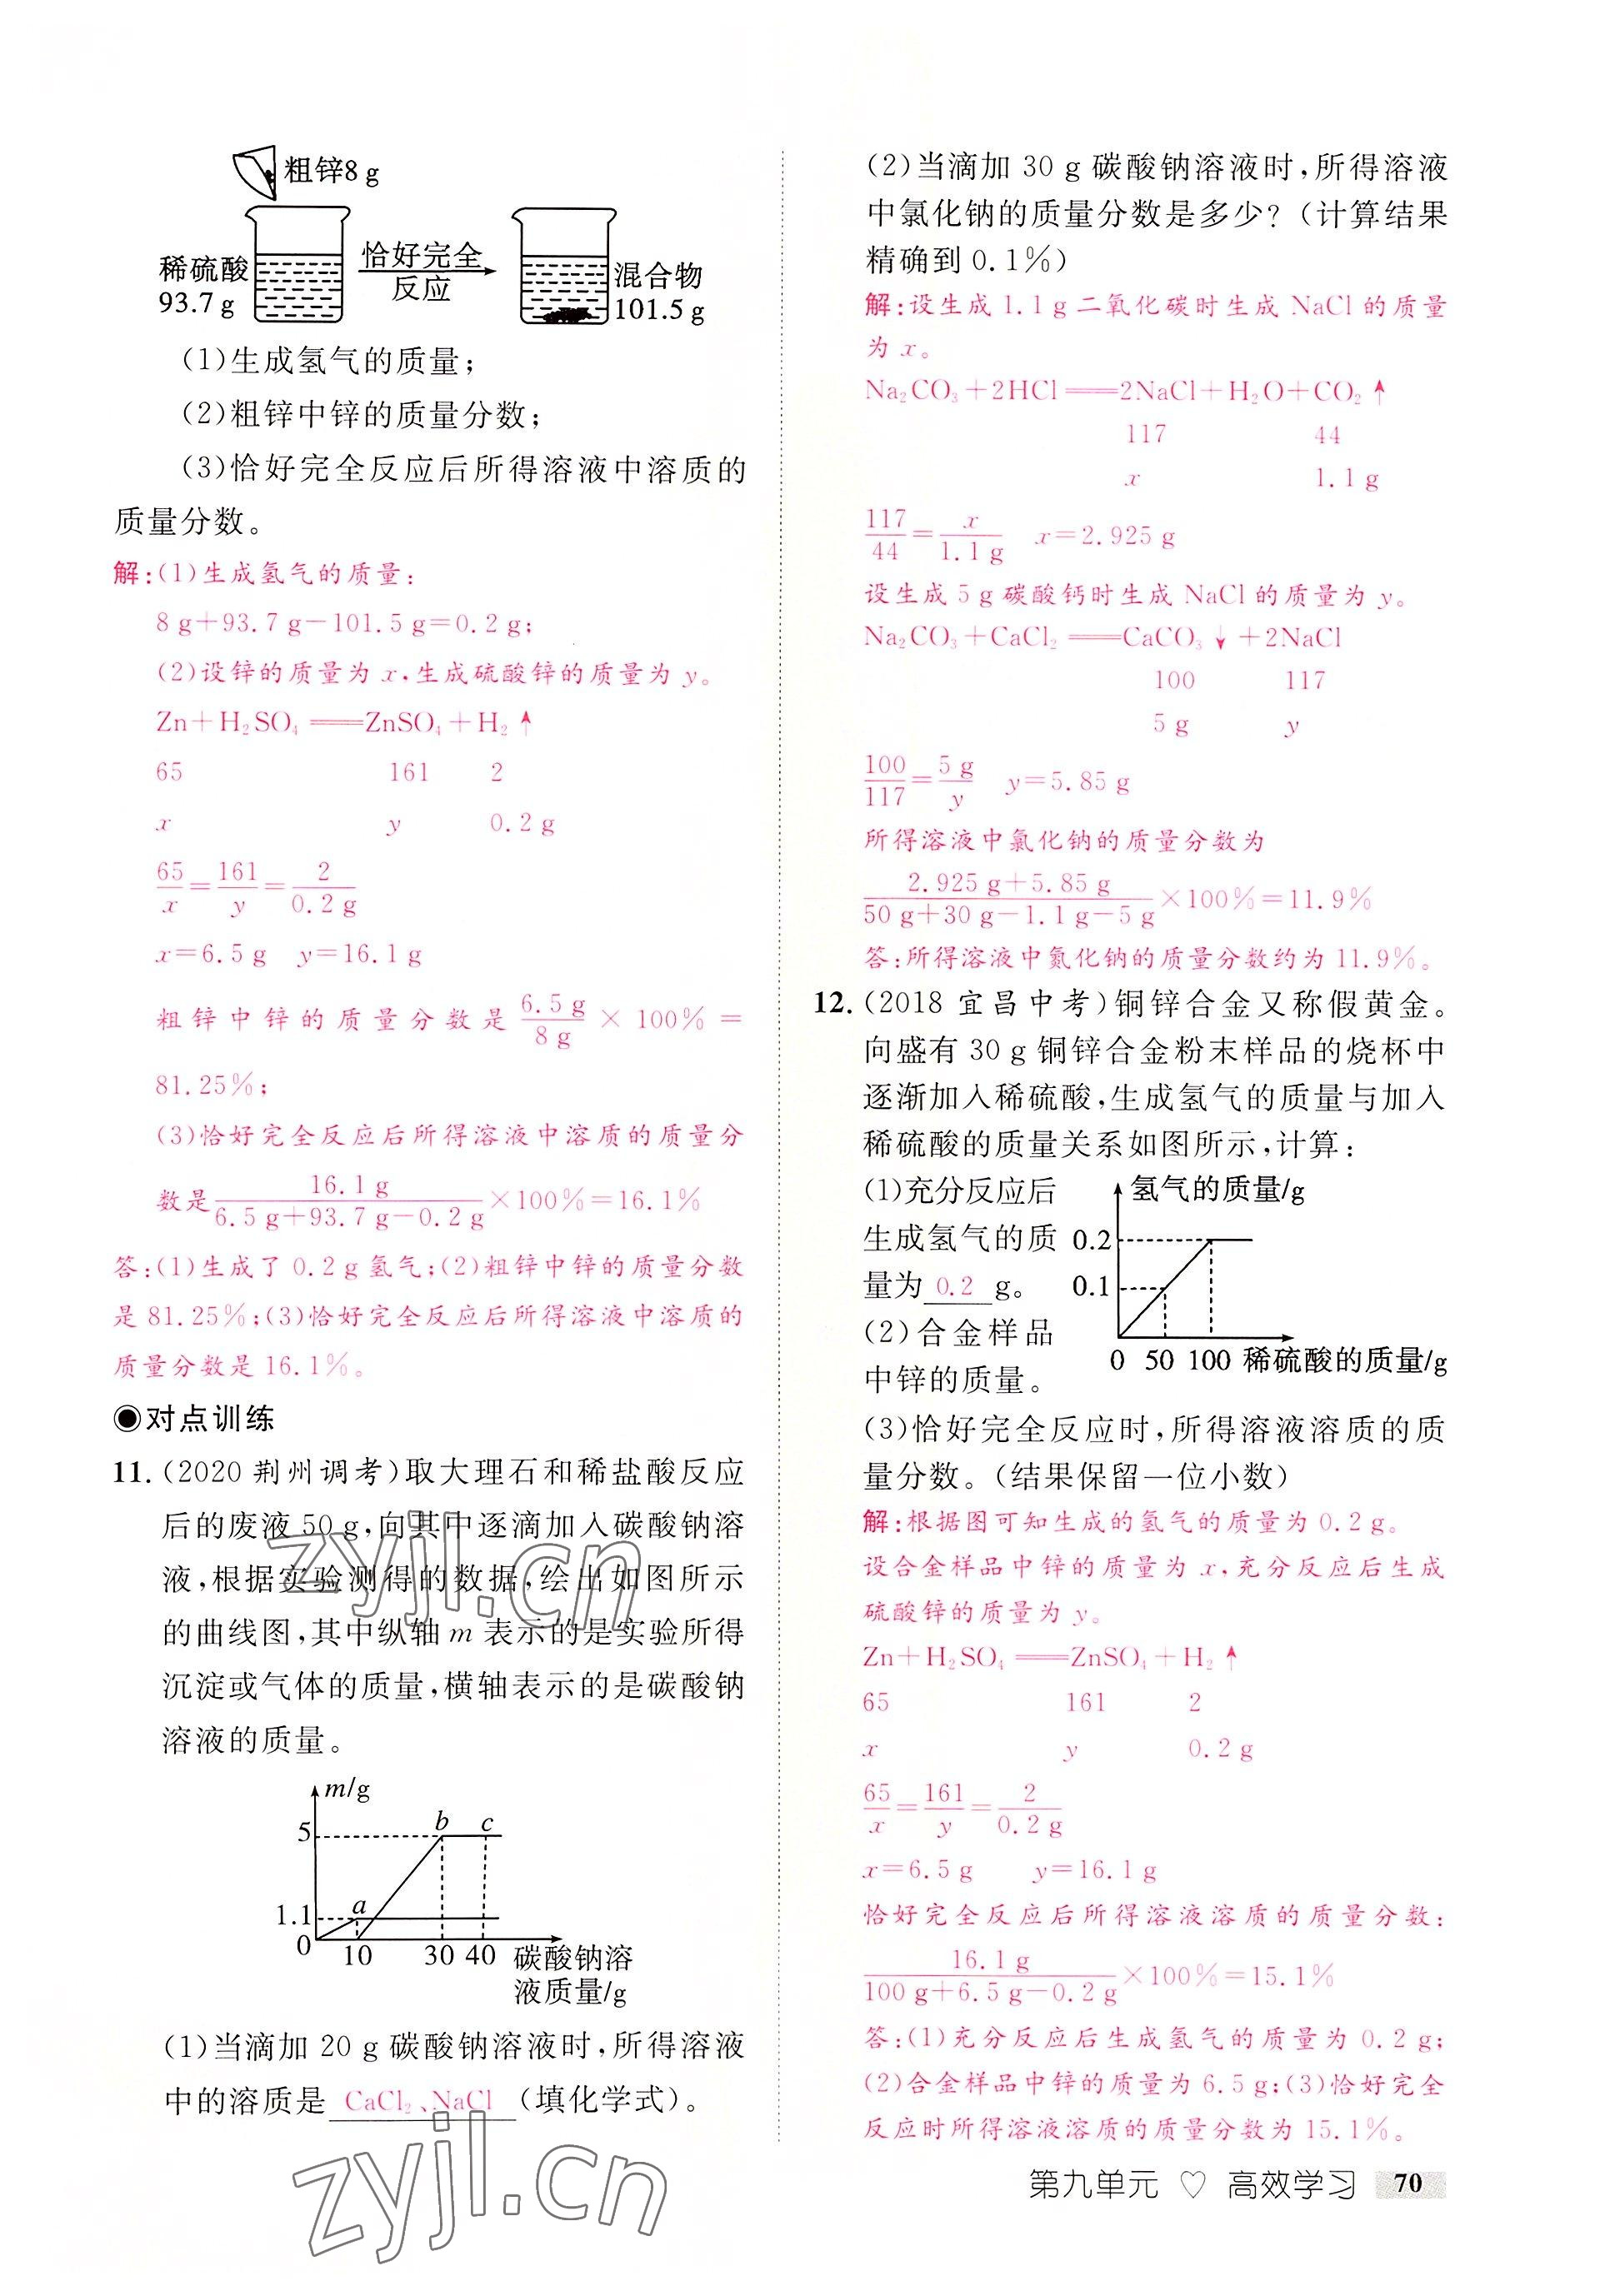 粗锌8 g
稀硫酸
93.7 g
恰好完全
反应
混合物
101.5 g
(1)生成氢气的质量;
(2)粗锌中锌的质量分数;
(3)恰好完全反应后所得溶液中溶质的
质量分数。
解:(1)生成氢气的质量:
8 g+93.7 g-101.5 g=0.2 g;
(2)设锌的质量为 x,生成硫酸锌的质量为 y。
Zn+H₂SO₄══ZnSO₄+H₂↑
65 161 2
x y 0.2 g
65/x=161/y=2/0.2 g
x=6.5 g y=16.1 g
粗锌中锌的质量分数是 6.5 g/8 g × 100% =
81.25%;
(3)恰好完全反应后所得溶液中溶质的质量分
数是 16.1 g/(6.5 g+93.7 g-0.2 g)×100%=16.1%
答:(1)生成了 0.2 g 氢气;(2)粗锌中锌的质量分数
是 81.25%;(3)恰好完全反应后所得溶液中溶质的
质量分数是 16.1%。
◉对点训练
11. (2020 荆州调考)取大理石和稀盐酸反应
后的废液 50 g,向其中逐滴加入碳酸钠溶
液,根据实验测得的数据,绘出如图所示
的曲线图,其中纵轴 m 表示的是实验所得
沉淀或气体的质量,横轴表示的是碳酸钠
溶液的质量。
m/g
5 b c
1.1 a
0 10 30 40 碳酸钠溶
液质量/g
(1)当滴加 20 g 碳酸钠溶液时,所得溶液
中的溶质是 CaCl₂、NaCl (填化学式)。
(2)当滴加 30 g 碳酸钠溶液时,所得溶液
中氯化钠的质量分数是多少?(计算结果
精确到 0.1%)
解:设生成 1.1 g 二氧化碳时生成 NaCl 的质量
为 x。
Na₂CO₃+2HCl══2NaCl+H₂O+CO₂↑
117 44
x 1.1 g
117/44=x/1.1 g x=2.925 g
设生成 5 g 碳酸钙时生成 NaCl 的质量为 y。
Na₂CO₃+CaCl₂══CaCO₃↓+2NaCl
100 117
5 g y
100/117=5 g/y y=5.85 g
所得溶液中氯化钠的质量分数为
(2.925 g+5.85 g)/(50 g+30 g-1.1 g-5 g)×100%=11.9%
答:所得溶液中氮化钠的质量分数约为 11.9%。
12. (2018 宜昌中考)铜锌合金又称假黄金。
向盛有 30 g 铜锌合金粉末样品的烧杯中
逐渐加入稀硫酸,生成氢气的质量与加入
稀硫酸的质量关系如图所示,计算:
(1)充分反应后
生成氢气的质
量为 0.2 g。
(2)合金样品
中锌的质量。
氢气的质量/g
0.2
0.1
0 50 100 稀硫酸的质量/g
(3)恰好完全反应时,所得溶液溶质的质
量分数。(结果保留一位小数)
解:根据图可知生成的氢气的质量为 0.2 g。
设合金样品中锌的质量为 x,充分反应后生成
硫酸锌的质量为 y。
Zn+H₂SO₄══ZnSO₄+H₂↑
65 161 2
x y 0.2 g
65/x=161/y=2/0.2 g
x=6.5 g y=16.1 g
恰好完全反应后所得溶液溶质的质量分数:
16.1 g/(100 g+6.5 g-0.2 g)×100%=15.1%
答:(1)充分反应后生成氢气的质量为 0.2 g;
(2)合金样品中锌的质量为 6.5 g;(3)恰好完全
反应时所得溶液溶质的质量分数为 15.1%。
zyjl.cn
zyjl.cn
第九单元 ♡ 高效学习 70